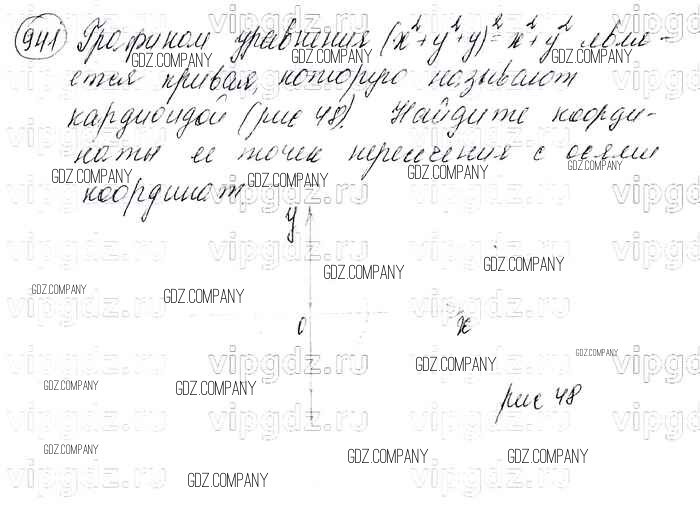 941 Графиком уравнения (x²+y²+y)²=x²+y² явля-
ется кривая, которую называют
кардиоидой (рис 48). Найдите коорди-
наты ее точек пересечения с осями
координат
y
0 x
рис 48
GDZ.COMPANY
vipgdz.ru